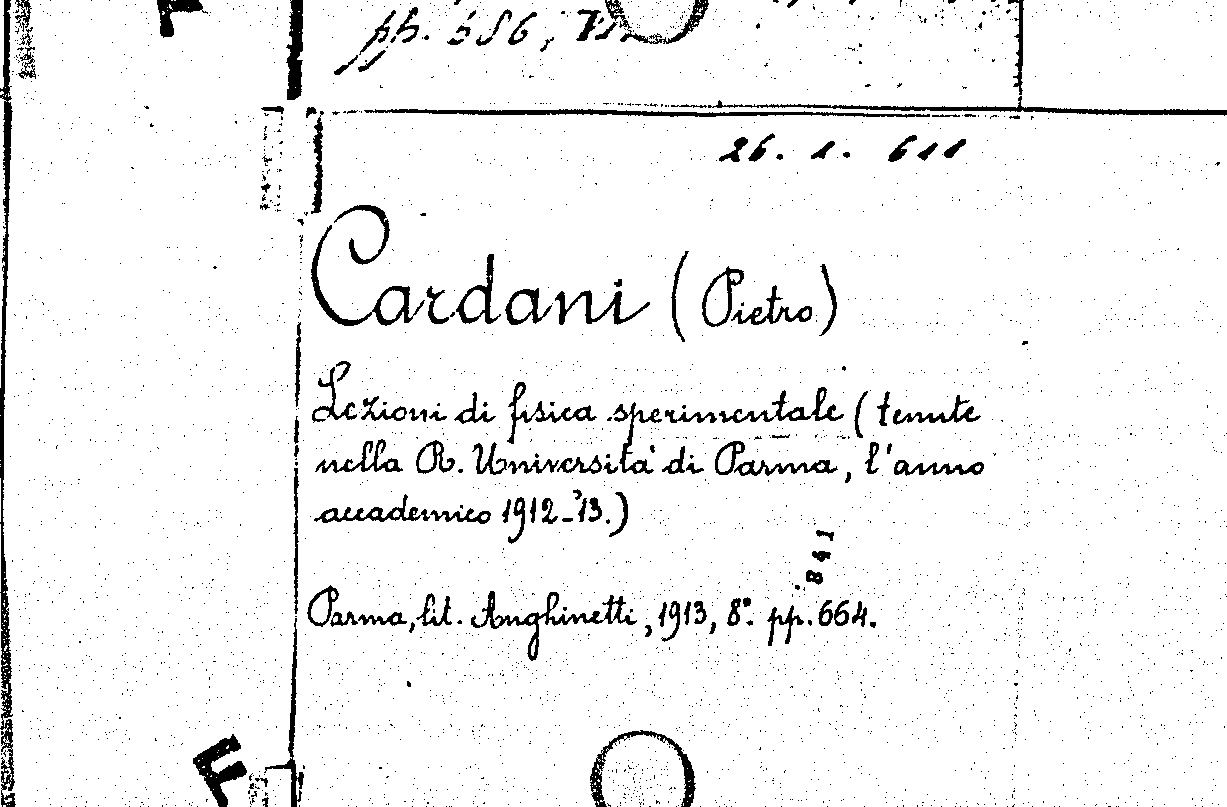 pp. 586,
26. 1. 611
Cardani (Pietro)
Lezioni di fisica sperimentale (tenute
nella R. Università di Parma, l'anno
accademico 1912-'13.)
Parma, lit. Anghinetti, 1913, 8º. pp. 664.